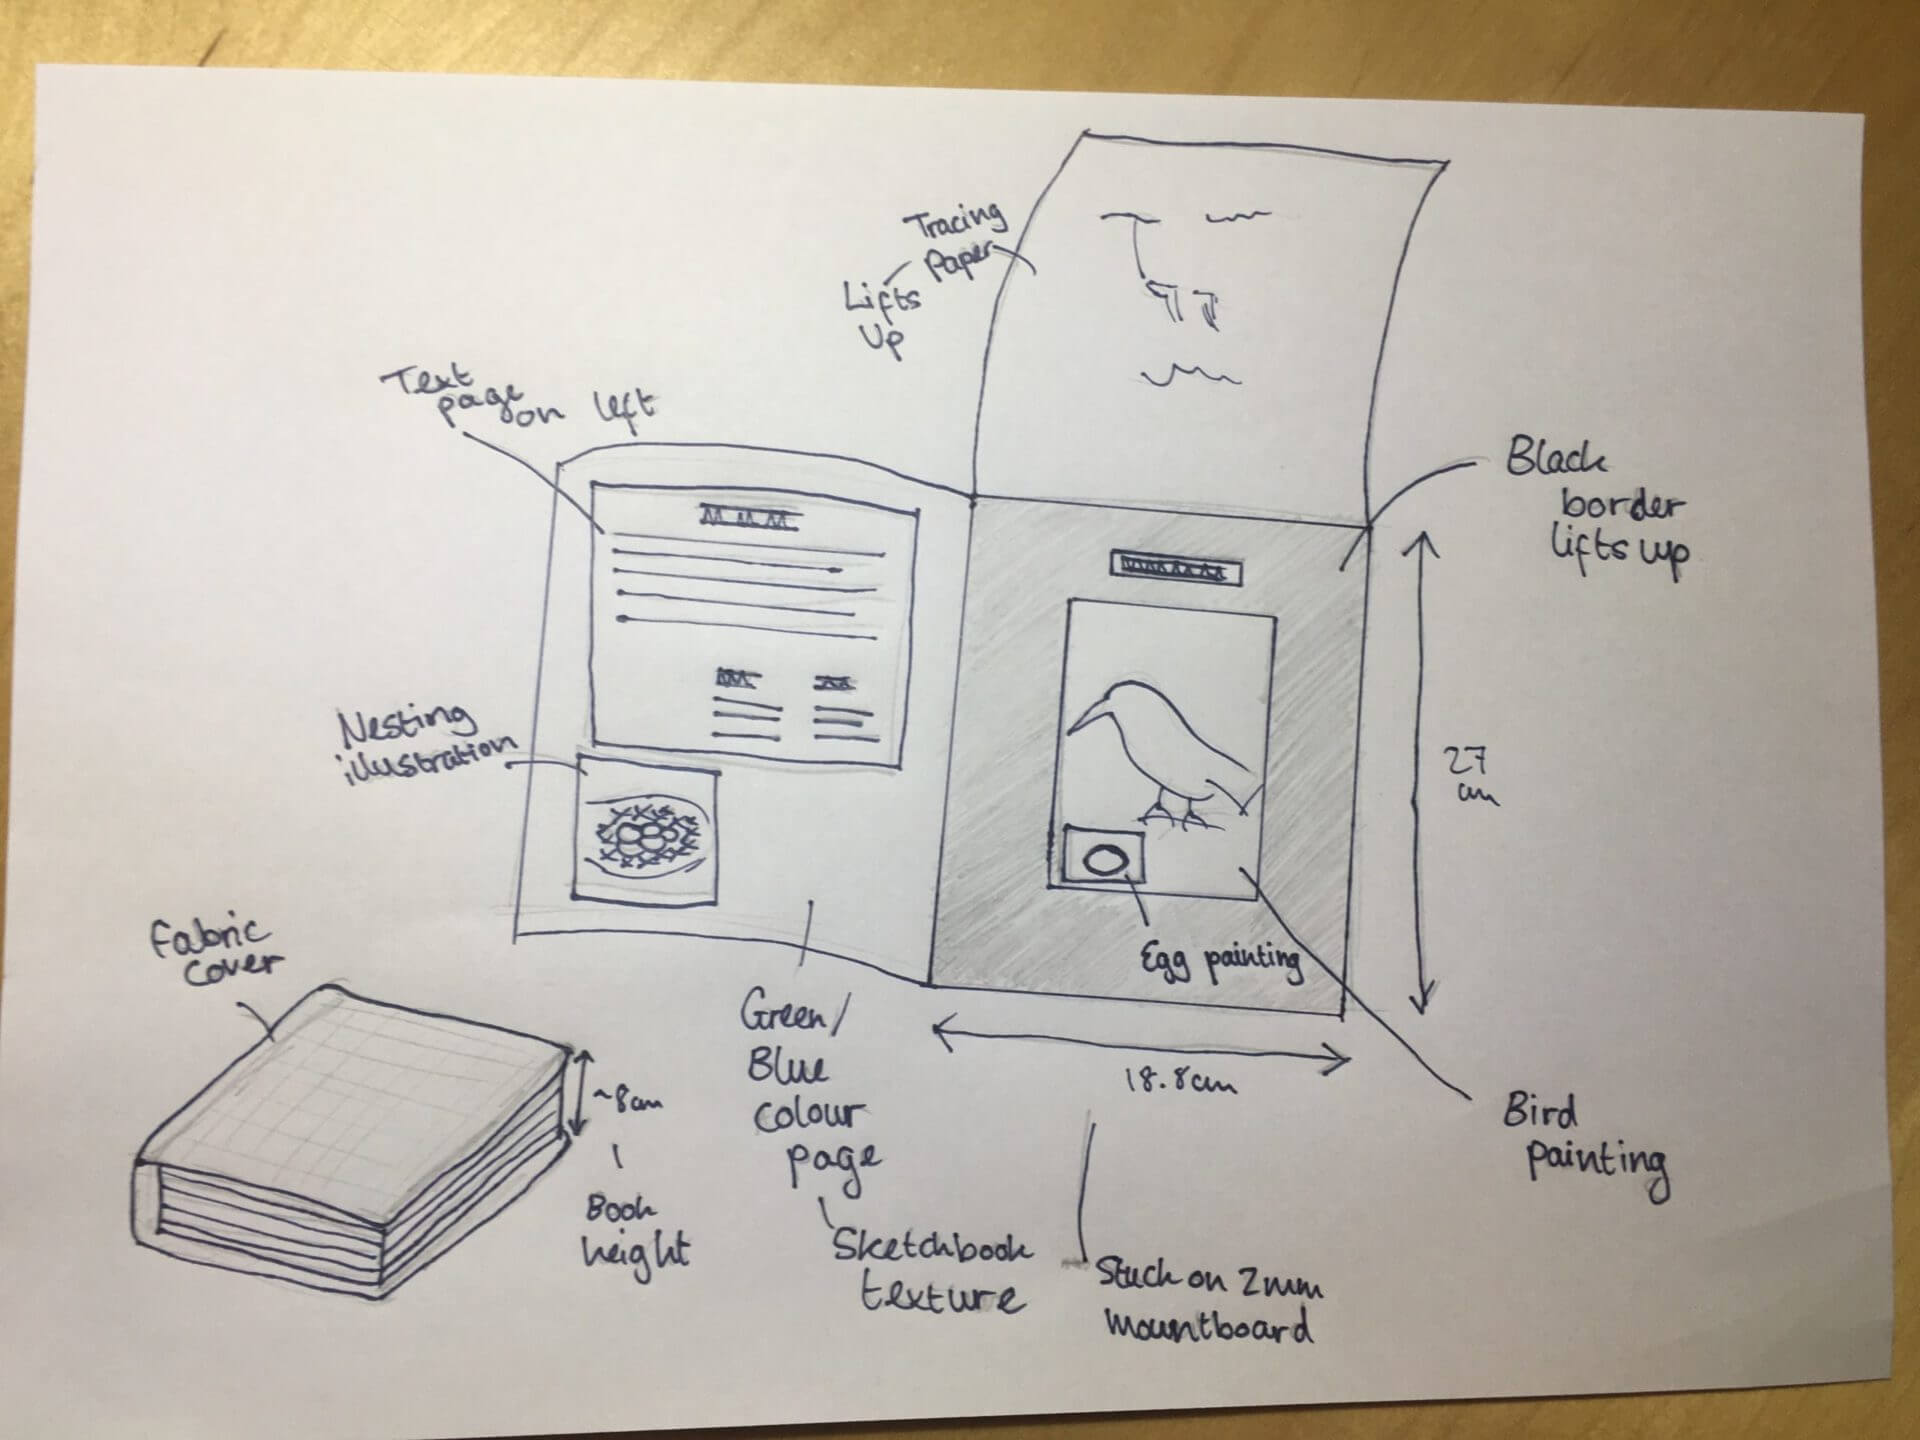 Tracing
Paper
Lifts
Up
Text
page
on left
Black
border
lifts up
Nesting
illustration
27
cm
Egg painting
Fabric
cover
18.8cm
Green/
Blue
colour
page
Sketchbook
texture
~8cm
Book
height
Bird
painting
Stuck on 2mm
mountboard